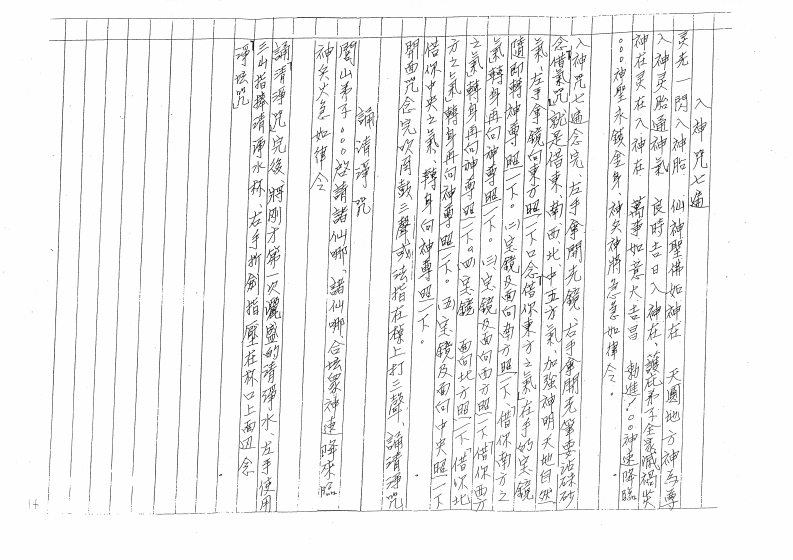 入神咒七遍
灵光一閃入神胎　仙神聖佛如神在　天圓地方神為尊
入神灵胎通神氣　良時吉日入神在、護庇弟子全家滅禍災
神在灵在入神在　萬事如意大吉昌　勅進！○○神速降臨
○○○神聖永鎮金身、神兵神將急急如律令。
入神咒七遍念完、左手拿開光鏡、右手拿開光筆要沾硃砂
念借氣咒、就是借東、南、西、北、中五方氣、加強神明天地自然
氣、左手拿鏡向東方照一下口念借你東方之氣、在手的宝鏡
隨即轉神尊照一下。㈡宝鏡及面向南方照一下、借你南方之
氣轉身再向神尊照一下。㈢宝鏡及面向西方照一下、借你西方
之氣轉身再向神尊照一下。㈣宝鏡　面向北方照一下、借你北
方之氣轉身再向神尊照一下。㈤宝鏡及面向中央照一下
借你中央之氣、轉身向神尊照一下。
開面咒念完吹角鼓三聲或法指在棹上打三聲、誦清淨咒
誦清淨咒
閭山弟子○○○啟請諸仙哪、諸仙哪合坛眾神速降來臨
神兵火急如律令
誦清淨咒完後、將剛才第一次灑盛的清淨水、左手使用
三山指捧清淨水杯、右手折劍指壓在杯口上面边念
淨坛咒
14